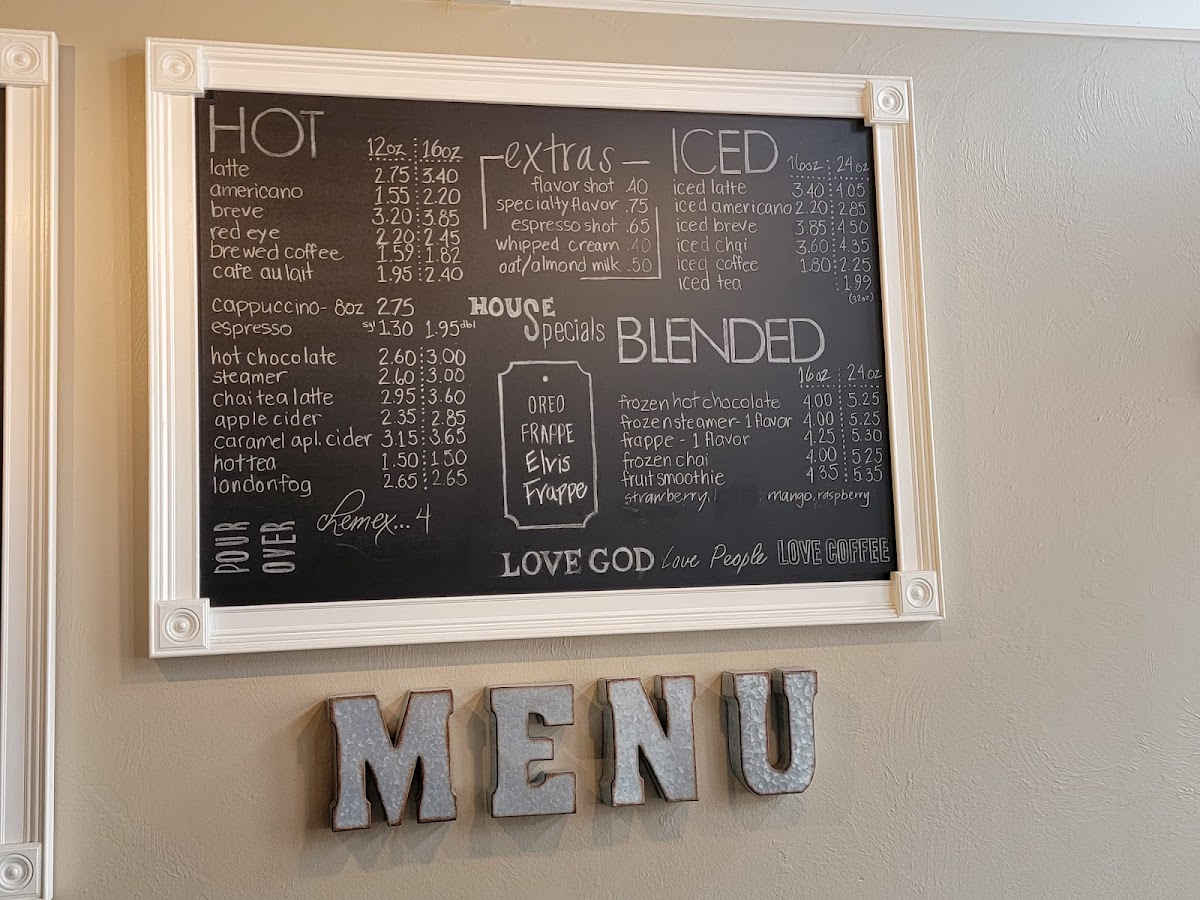 HOT
12oz 16oz
latte 2.75 3.40
americano 1.55 2.20
breve 3.20 3.85
red eye 2.20 2.45
brewed coffee 1.59 1.82
cafe au lait 1.95 2.40
cappuccino- 8oz 2.75
espresso sgl 1.30 1.95 dbl
hot chocolate 2.60 3.00
steamer 2.60 3.00
chai tea latte 2.95 3.60
apple cider 2.35 2.85
caramel apl. cider 3.15 3.65
hot tea 1.50 1.50
london fog 2.65 2.65
POUR OVER
chemex... 4
extras
flavor shot .40
specialty flavor .75
espresso shot .65
whipped cream .40
oat/almond milk .50
HOUSE
Specials
OREO
FRAPPE
Elvis
Frappe
ICED
16oz 24oz
iced latte 3.40 4.05
iced americano 2.20 2.85
iced breve 3.85 4.50
iced chai 3.60 4.35
iced coffee 1.80 2.25
iced tea 1.99
(32oz)
BLENDED
16oz 24oz
frozen hot chocolate 4.00 5.25
frozen steamer- 1 flavor 4.00 5.25
frappe - 1 flavor 4.25 5.30
frozen chai 4.00 5.25
fruit smoothie 4.35 5.35
strawberry, mango, raspberry
LOVE GOD Love People LOVE COFFEE
MENU